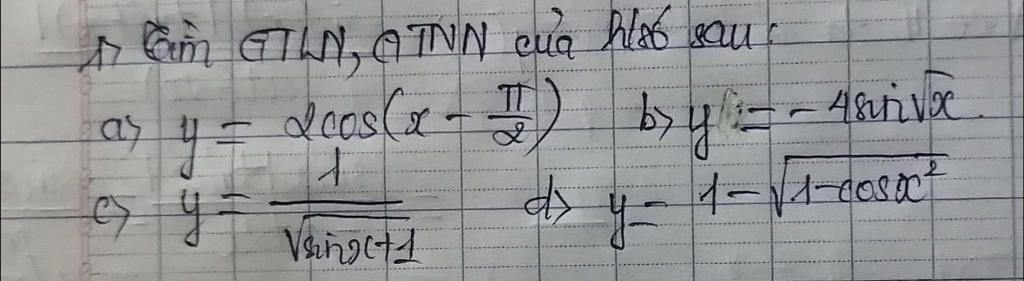 1) Tìm GTLN, GTNN của h/số sau:
a) y = 2cos(x - π/2) b) y = -4sin√x.
c) y = 1/√(sinx+1) d) y = 1-√(1-cosx²)